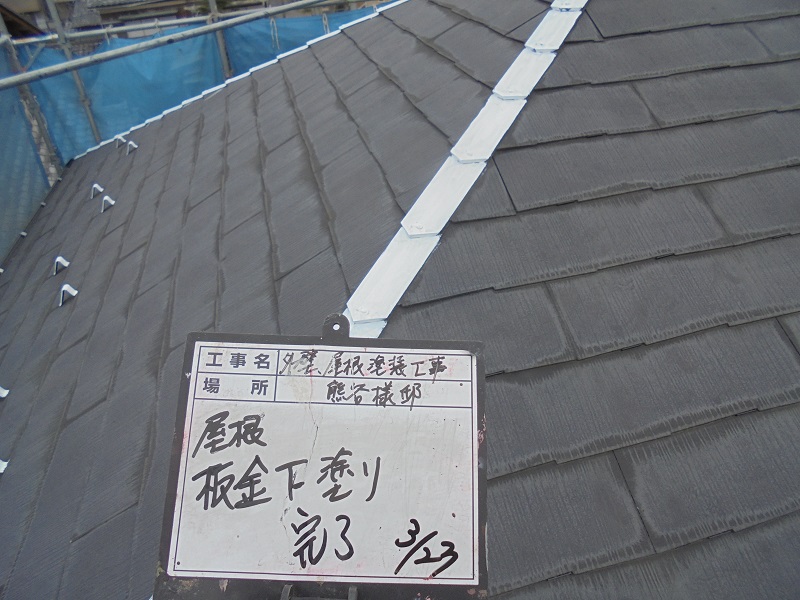 工事名 外壁屋根塗装工事
場所 熊谷様邸
屋根
板金下塗り
完了 3/23